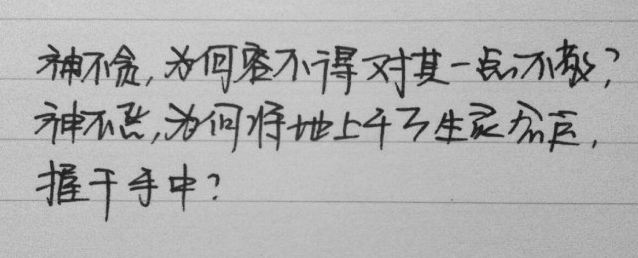 神不贪,为何容不得对其一点不敬?
神不恶,为何将地上千万生灵命运,
握于手中?